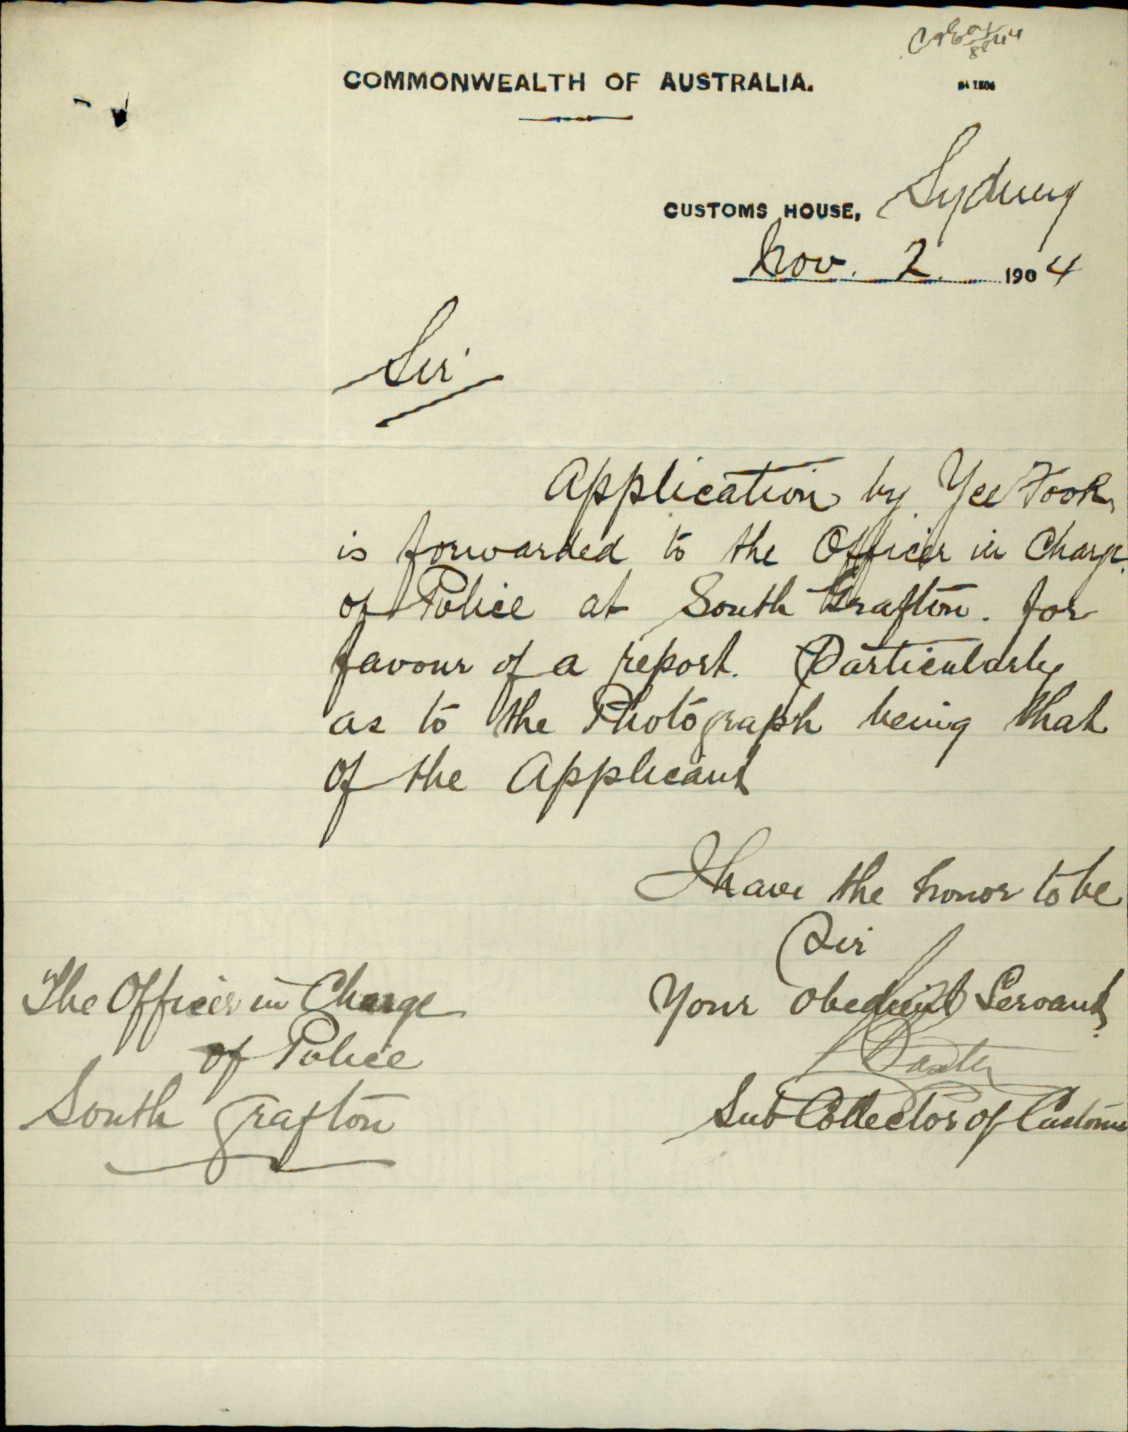 COMMONWEALTH OF AUSTRALIA.
CUSTOMS HOUSE, Sydney
Nov. 2 1904
Sir
Application by Yee Fook
is forwarded to the Officer in Charge
of Police at South Grafton. for
favour of a report. Particularly
as to the Photograph being that
of the Applicant
I have the honor to be
Sir
Your Obedient Servant
Baxter
Sub Collector of Customs
The Officer in Charge
of Police
South Grafton